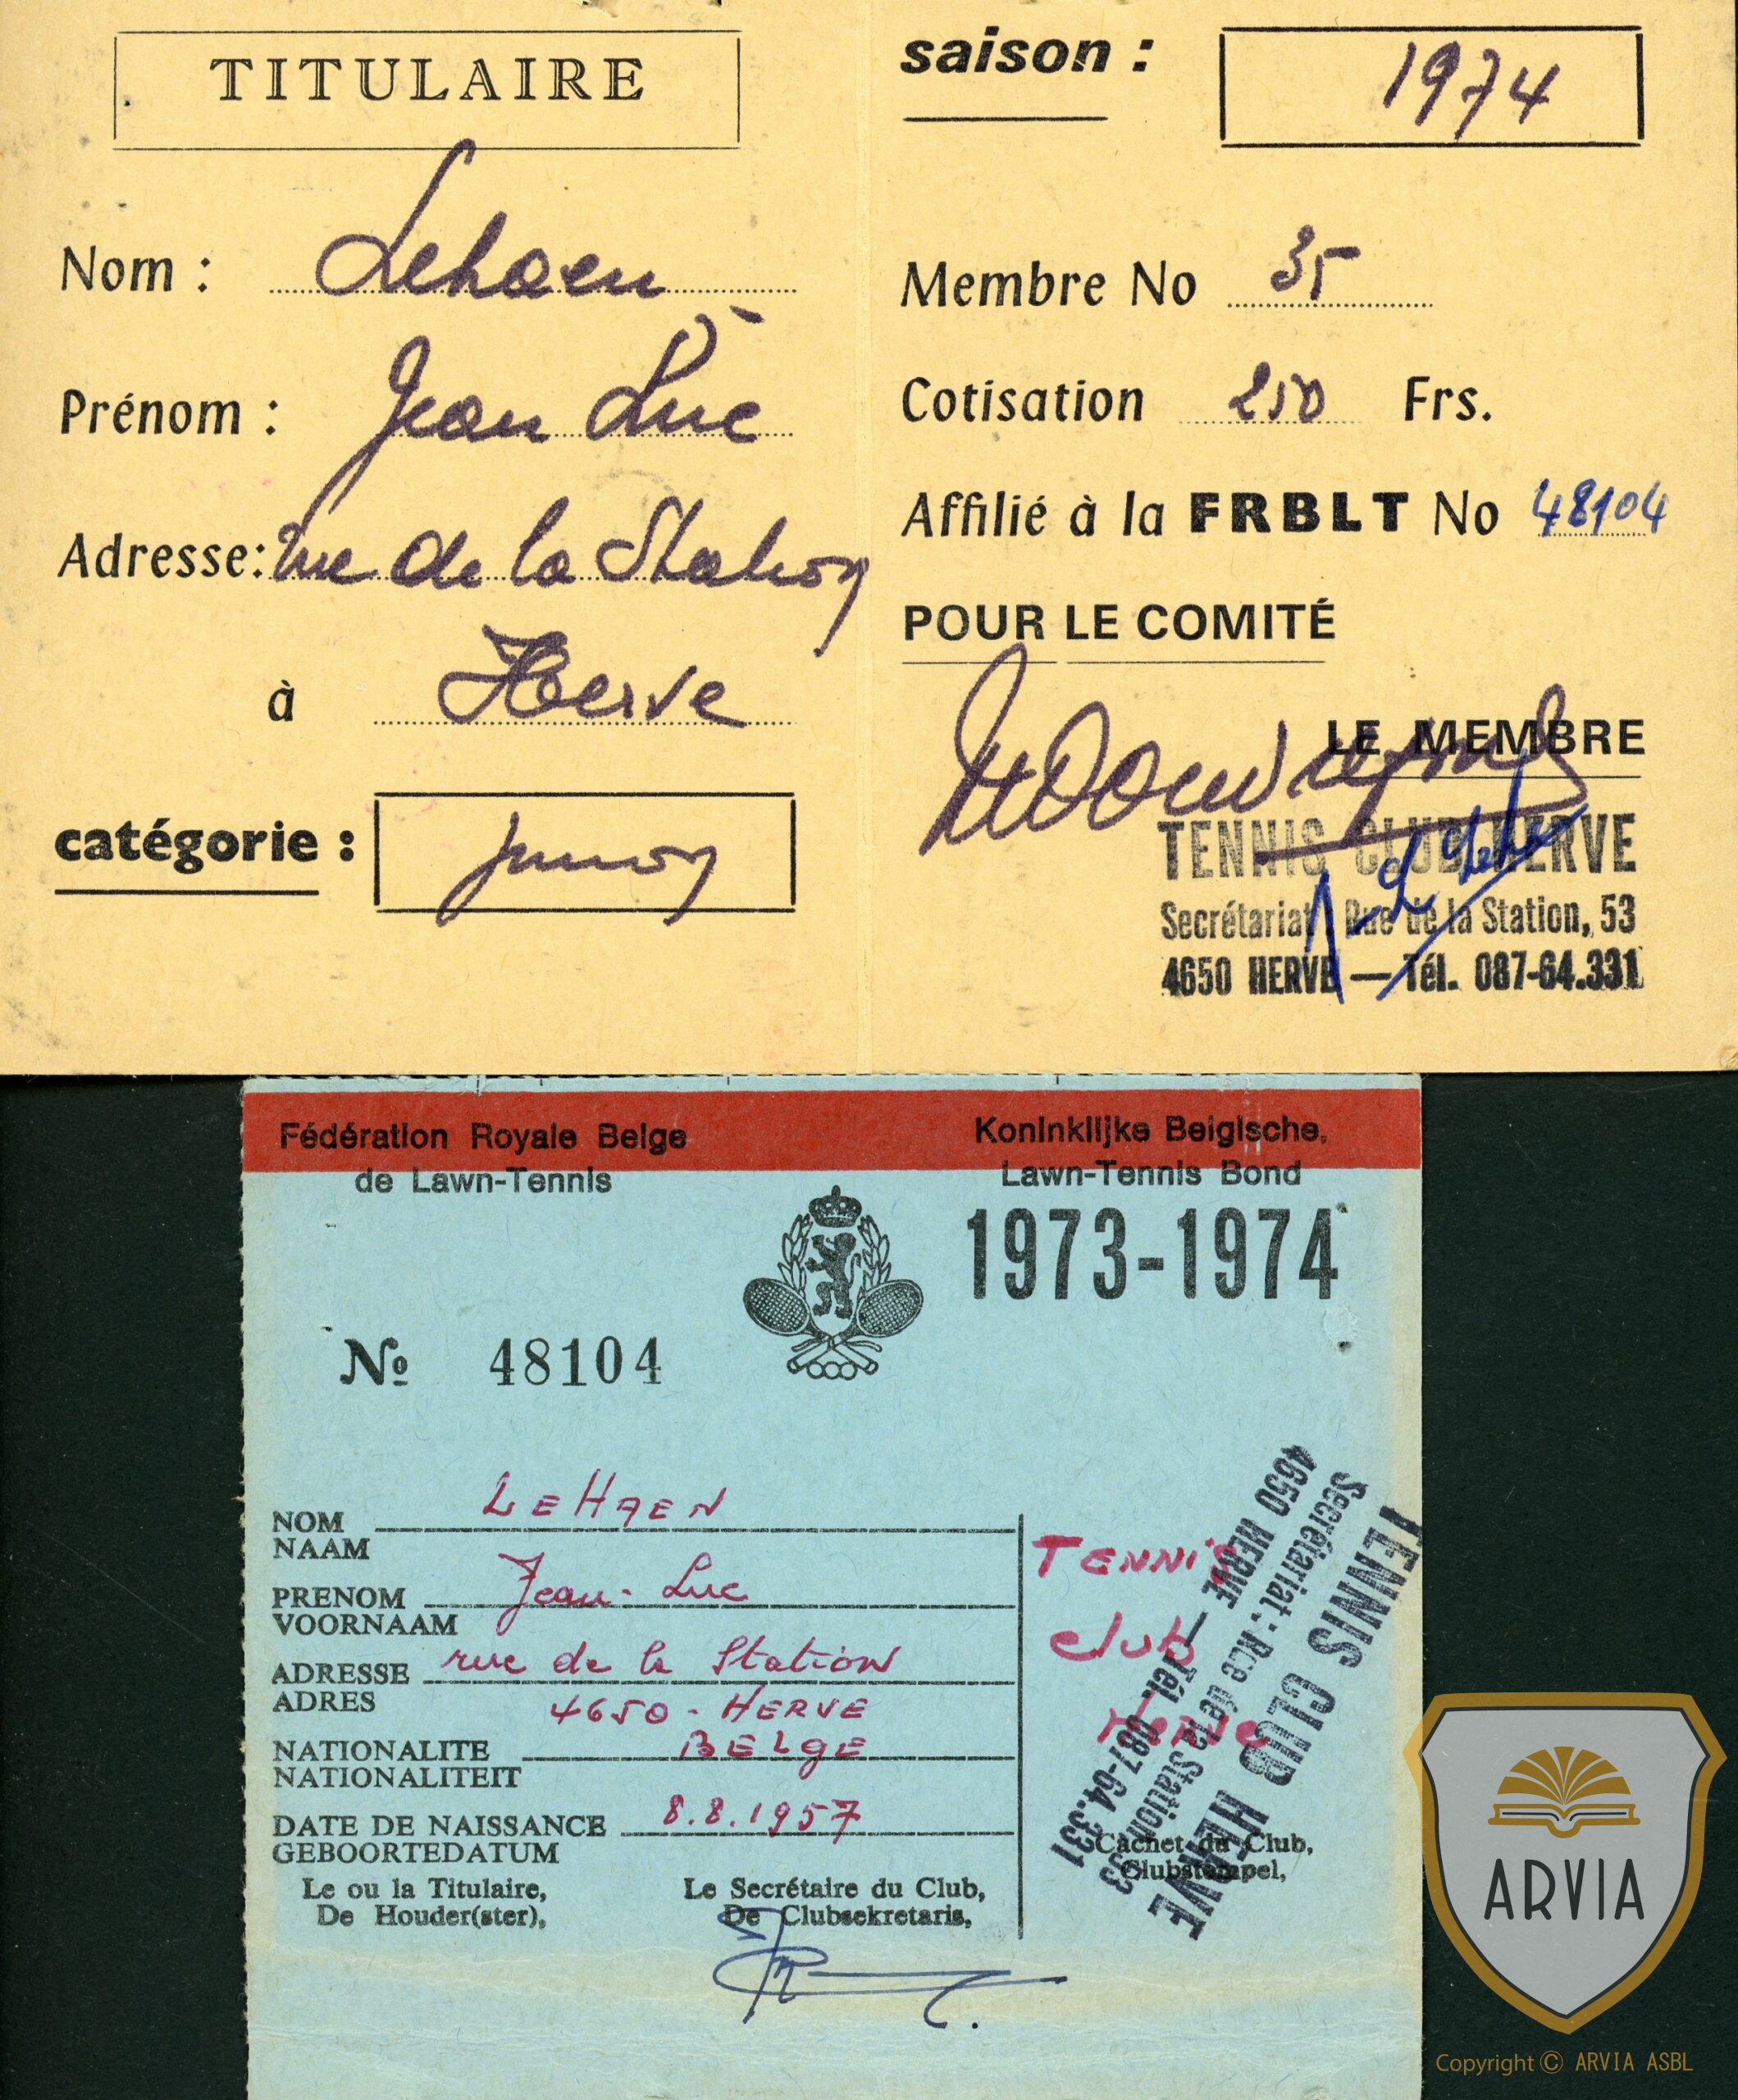 TITULAIRE
Nom : Lehaen
Prénom : Jean Luc
Adresse: rue de la Station
à Herve
catégorie : junior
saison : 1974
Membre No 35
Cotisation 250 Frs.
Affilié à la FRBLT No 48104
POUR LE COMITÉ
LE MEMBRE
TENNIS CLUB HERVE
Secrétariat : Rue de la Station, 53
4650 HERVE — Tél. 087-64.331
Fédération Royale Belge
de Lawn-Tennis
Koninklijke Belgische,
Lawn-Tennis Bond
1973-1974
No 48104
NOM LEHAEN
NAAM
PRENOM Jean-Luc
VOORNAAM
ADRESSE rue de la Station
ADRES 4650 - HERVE
NATIONALITE BELGE
NATIONALITEIT
DATE DE NAISSANCE 8.8.1957
GEBOORTEDATUM
Le ou la Titulaire,
De Houder(ster),
Le Secrétaire du Club,
De Clubsekretaris,
TENNIS
club
Herve
TENNIS CLUB HERVE
Secrétariat : Rue de la Station, 53
4650 HERVE — Tél. 087-64.331
Cachet du Club,
Clubstempel,
ARVIA
Copyright © ARVIA ASBL